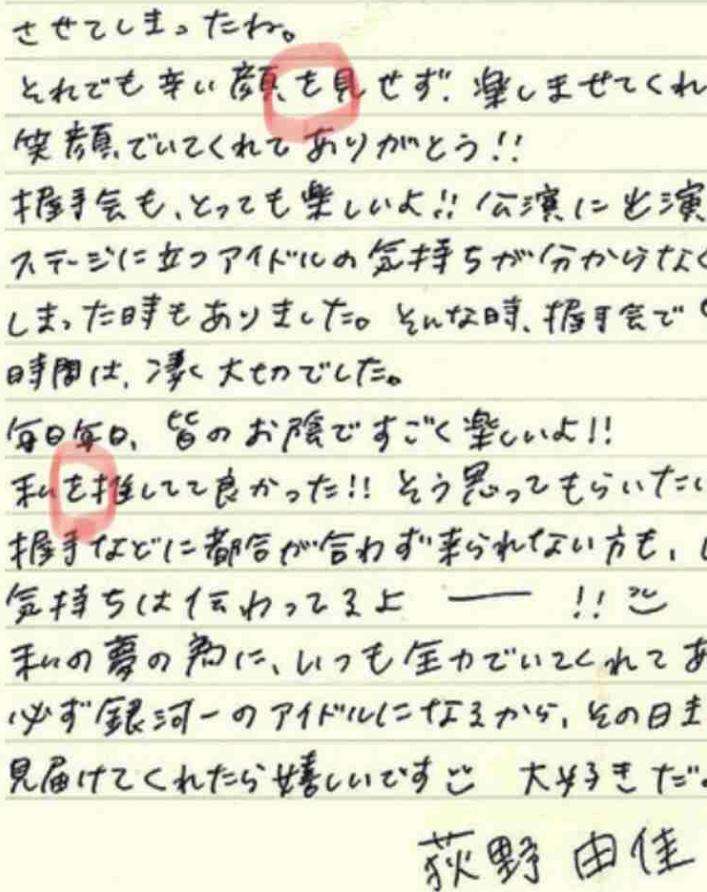 させてしまったね。
それでも辛い顔を見せず、楽しませてくれ
笑顔でいてくれてありがとう!!
握手会も、とっても楽しいよ!! 公演に出演
ステージに立つアイドルの気持ちが分からなく
しまった時もありました。そんな時、握手会で
時間は、凄く大切でした。
毎日毎日、皆のお陰ですごく楽しいよ!!
私を推してて良かった!! そう思ってもらいたい
握手などに都合が合わず来られない方も、
気持ちは伝わってるよ ー !!
私の夢の為に、いつも全力でいてくれてあ
必ず銀河一のアイドルになるから、その日ま
見届けてくれたら嬉しいです 大好きだ。
荻野 由佳